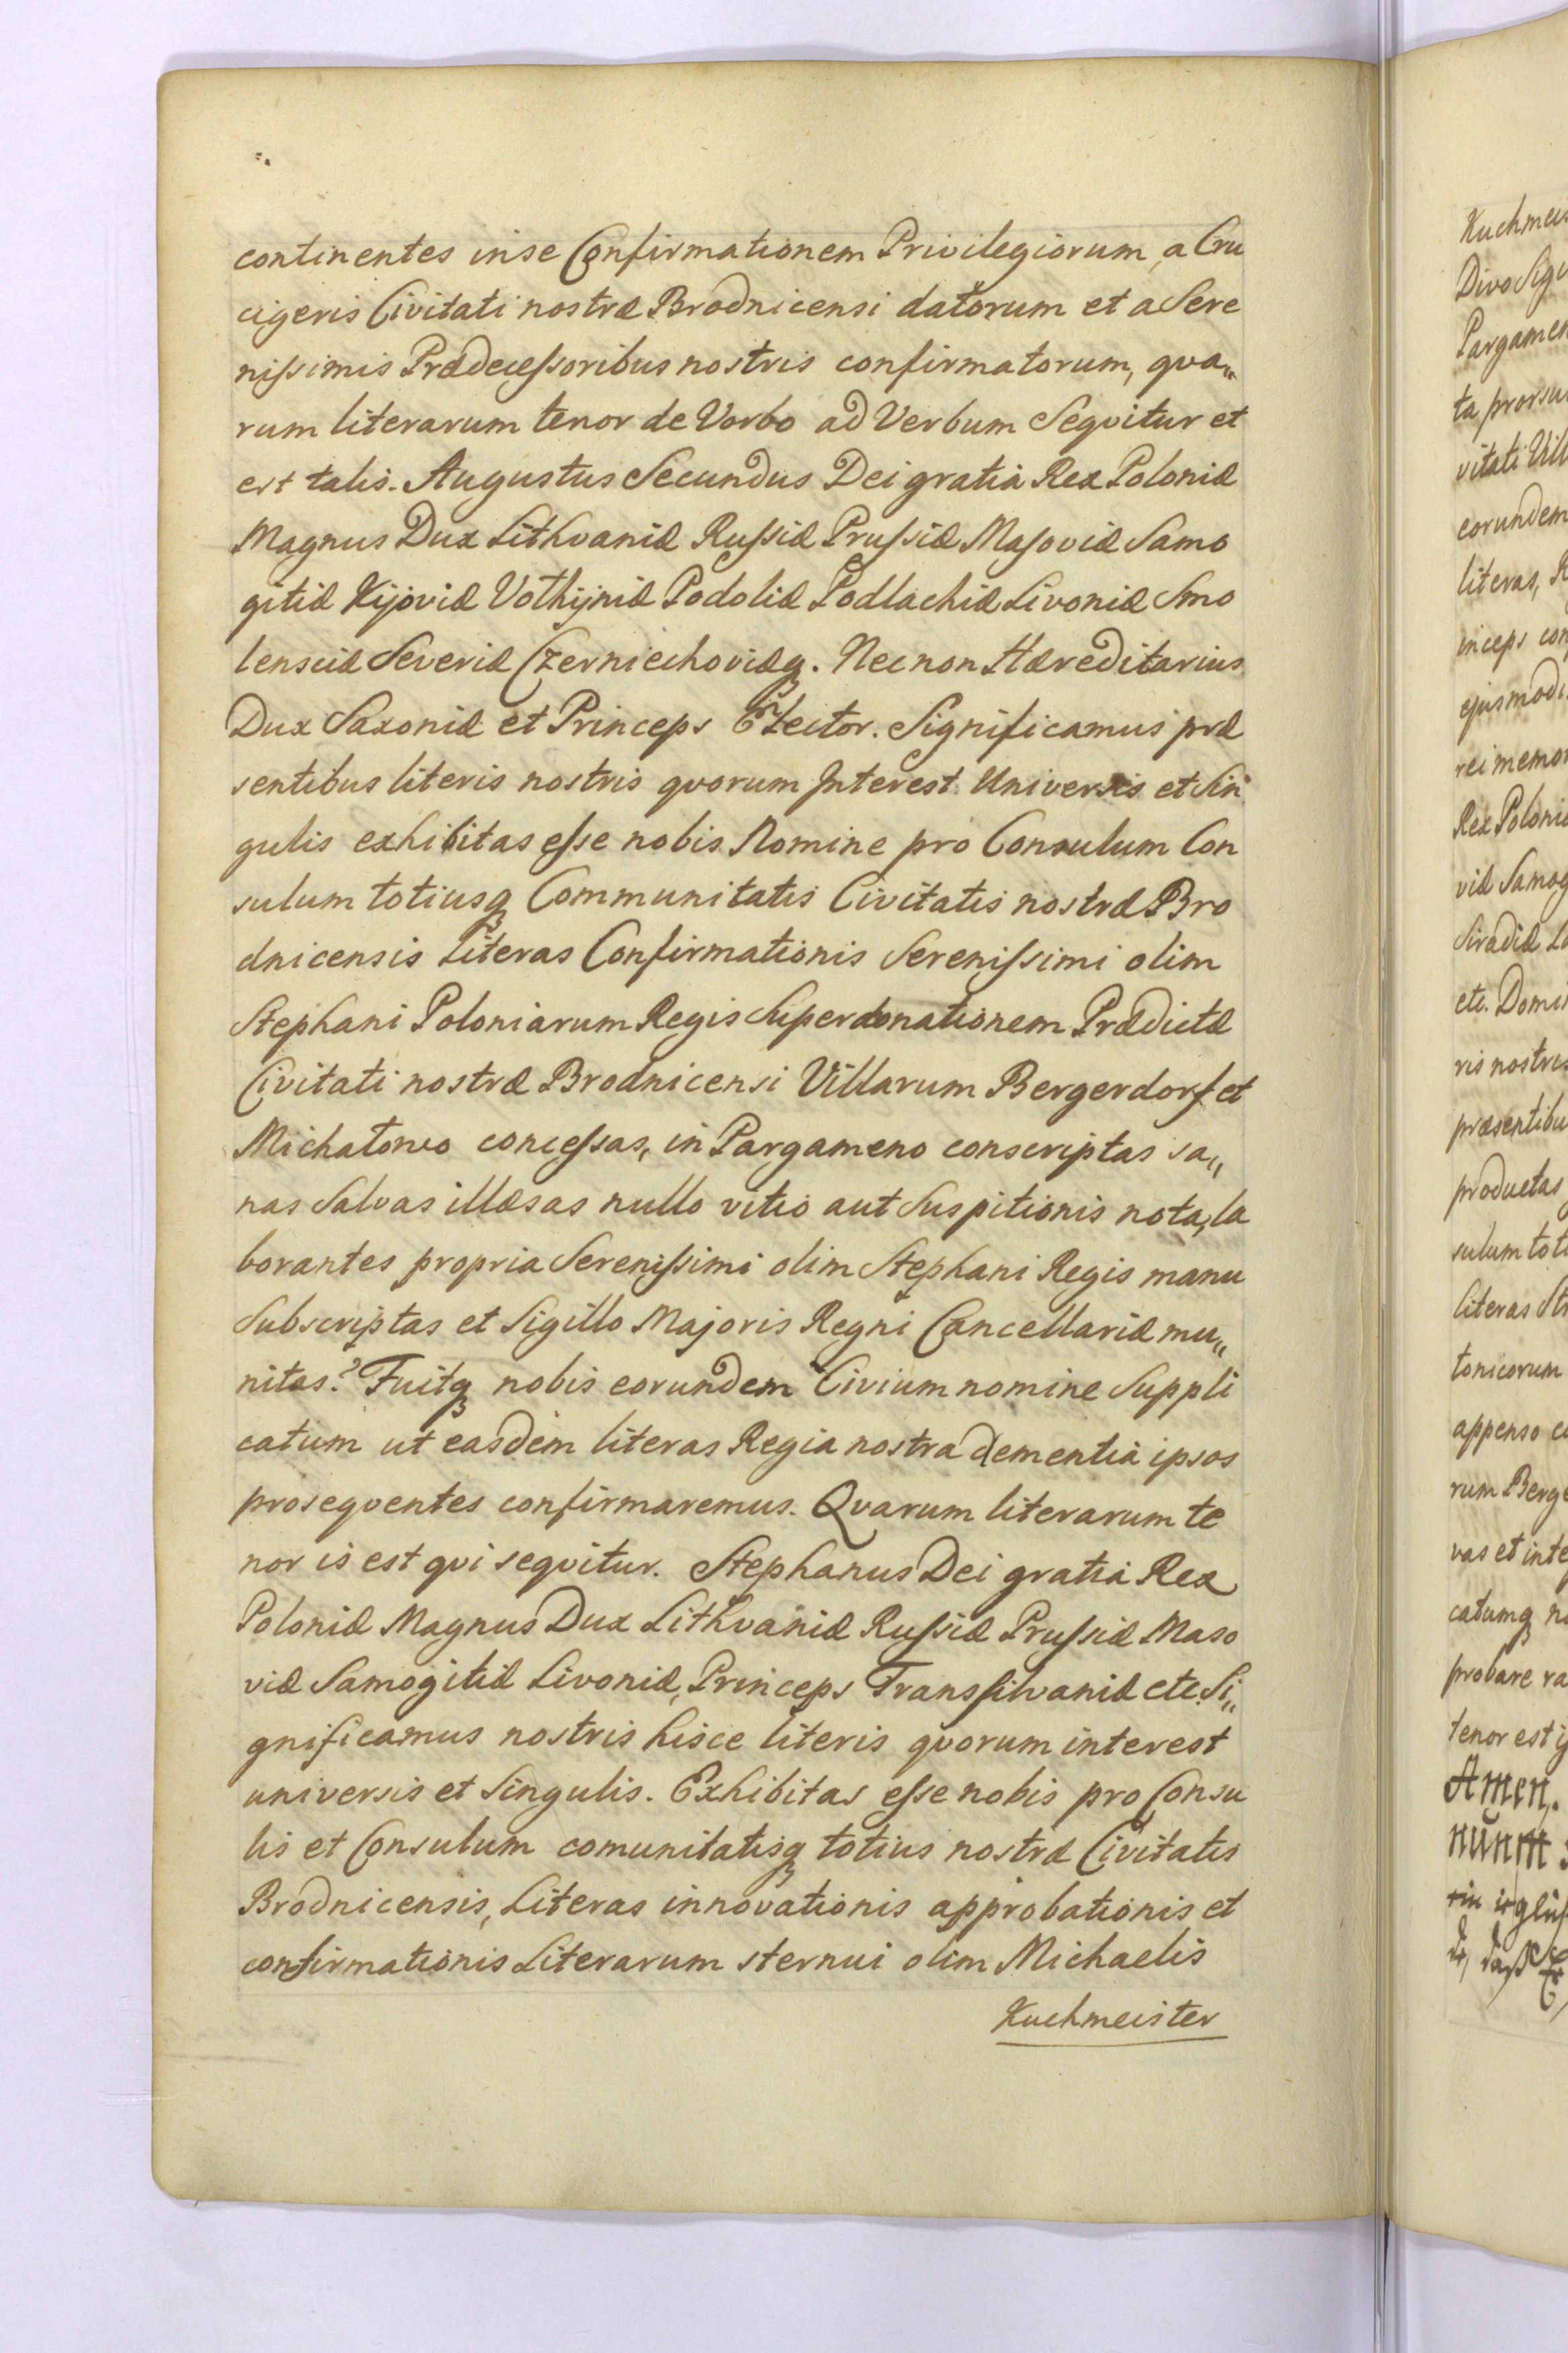 continentes in se Confirmationem Privilegiorum, a Cru
cigeris Civitati nostræ Brodnicensi datorum et a Sere
nißimis Prædeceßoribus nostris confirmatorum, qva„
rum literarum tenor de Verbo ad Verbum Seqvitur et
est talis. Augustus Secundus Dei gratia Rex Poloniæ
Magnus Dux Lithvaniæ Rußiæ Prußiæ Masoviæ Samo
gitiæ Kijoviæ Volhijniæ Podoliæ Podlachiæ Livoniæ Smo
lensciæ Severiæ Czerniechoviæq. Necnon Hæreditarius
Dux Saxoniæ et Princeps Elector. Significamus præ
sentibus literis nostris qvorum Interest Universis et Sin
gulis exhibitas eße nobis Nomine pro Consulum Con
sulum totiusq Communitatis Civitatis nostræ Bro
dnicensis Literas Confirmationis Serenißimi olim
Stephani Poloniarum Regis Super donationem Prædictæ
Civitati nostræ Brodnicensi Villarum Bergerdorf et
Michatowo conceßas, in Pargameno conscriptas sa„
nas Salvas illæsas nullo vitio aut Suspitionis nota, la
borantes propria Serenißimi olim Stephani Regis manu
Subscriptas et Sigillo Majoris Regni Cancellariæ mu„
nitas? Fuitq nobis eorundem Civium nomine Suppli
catum ut easdem literas Regia nostra clementia ipsos
proseqventes confirmaremus. Qvarum literarum te
nor is est qvi seqvitur. Stephanus Dei gratia Rex
Poloniæ Magnus Dux Lithvaniæ Rußiæ Prußiæ Maso
viæ Samogitiæ Livoniæ, Princeps Transsilvaniæ etc. Si„
gnificamus nostris hisce literis qvorum interest
universis et Singulis. Exhibitas eße nobis pro Consu
lis et Consulum comunitatisq totius nostræ Civitatis
Brodnicensis, Literas innovationis approbationis et
confirmationis Literarum sternui olim Michaelis
Kuchmeister
Divo Sigi
ta prorsu
vitati Vill
eorundem
literas,
inceps con
ejusmodi
rei memor
Rex Poloni
viæ Samog
Siradiæ
etc. Domi
ris nostris
præsentibu
productas
sulum toti
literas
tonicorum
appenso
rum Berge
vas et inte
catumq
probare
tenor est
Amen.